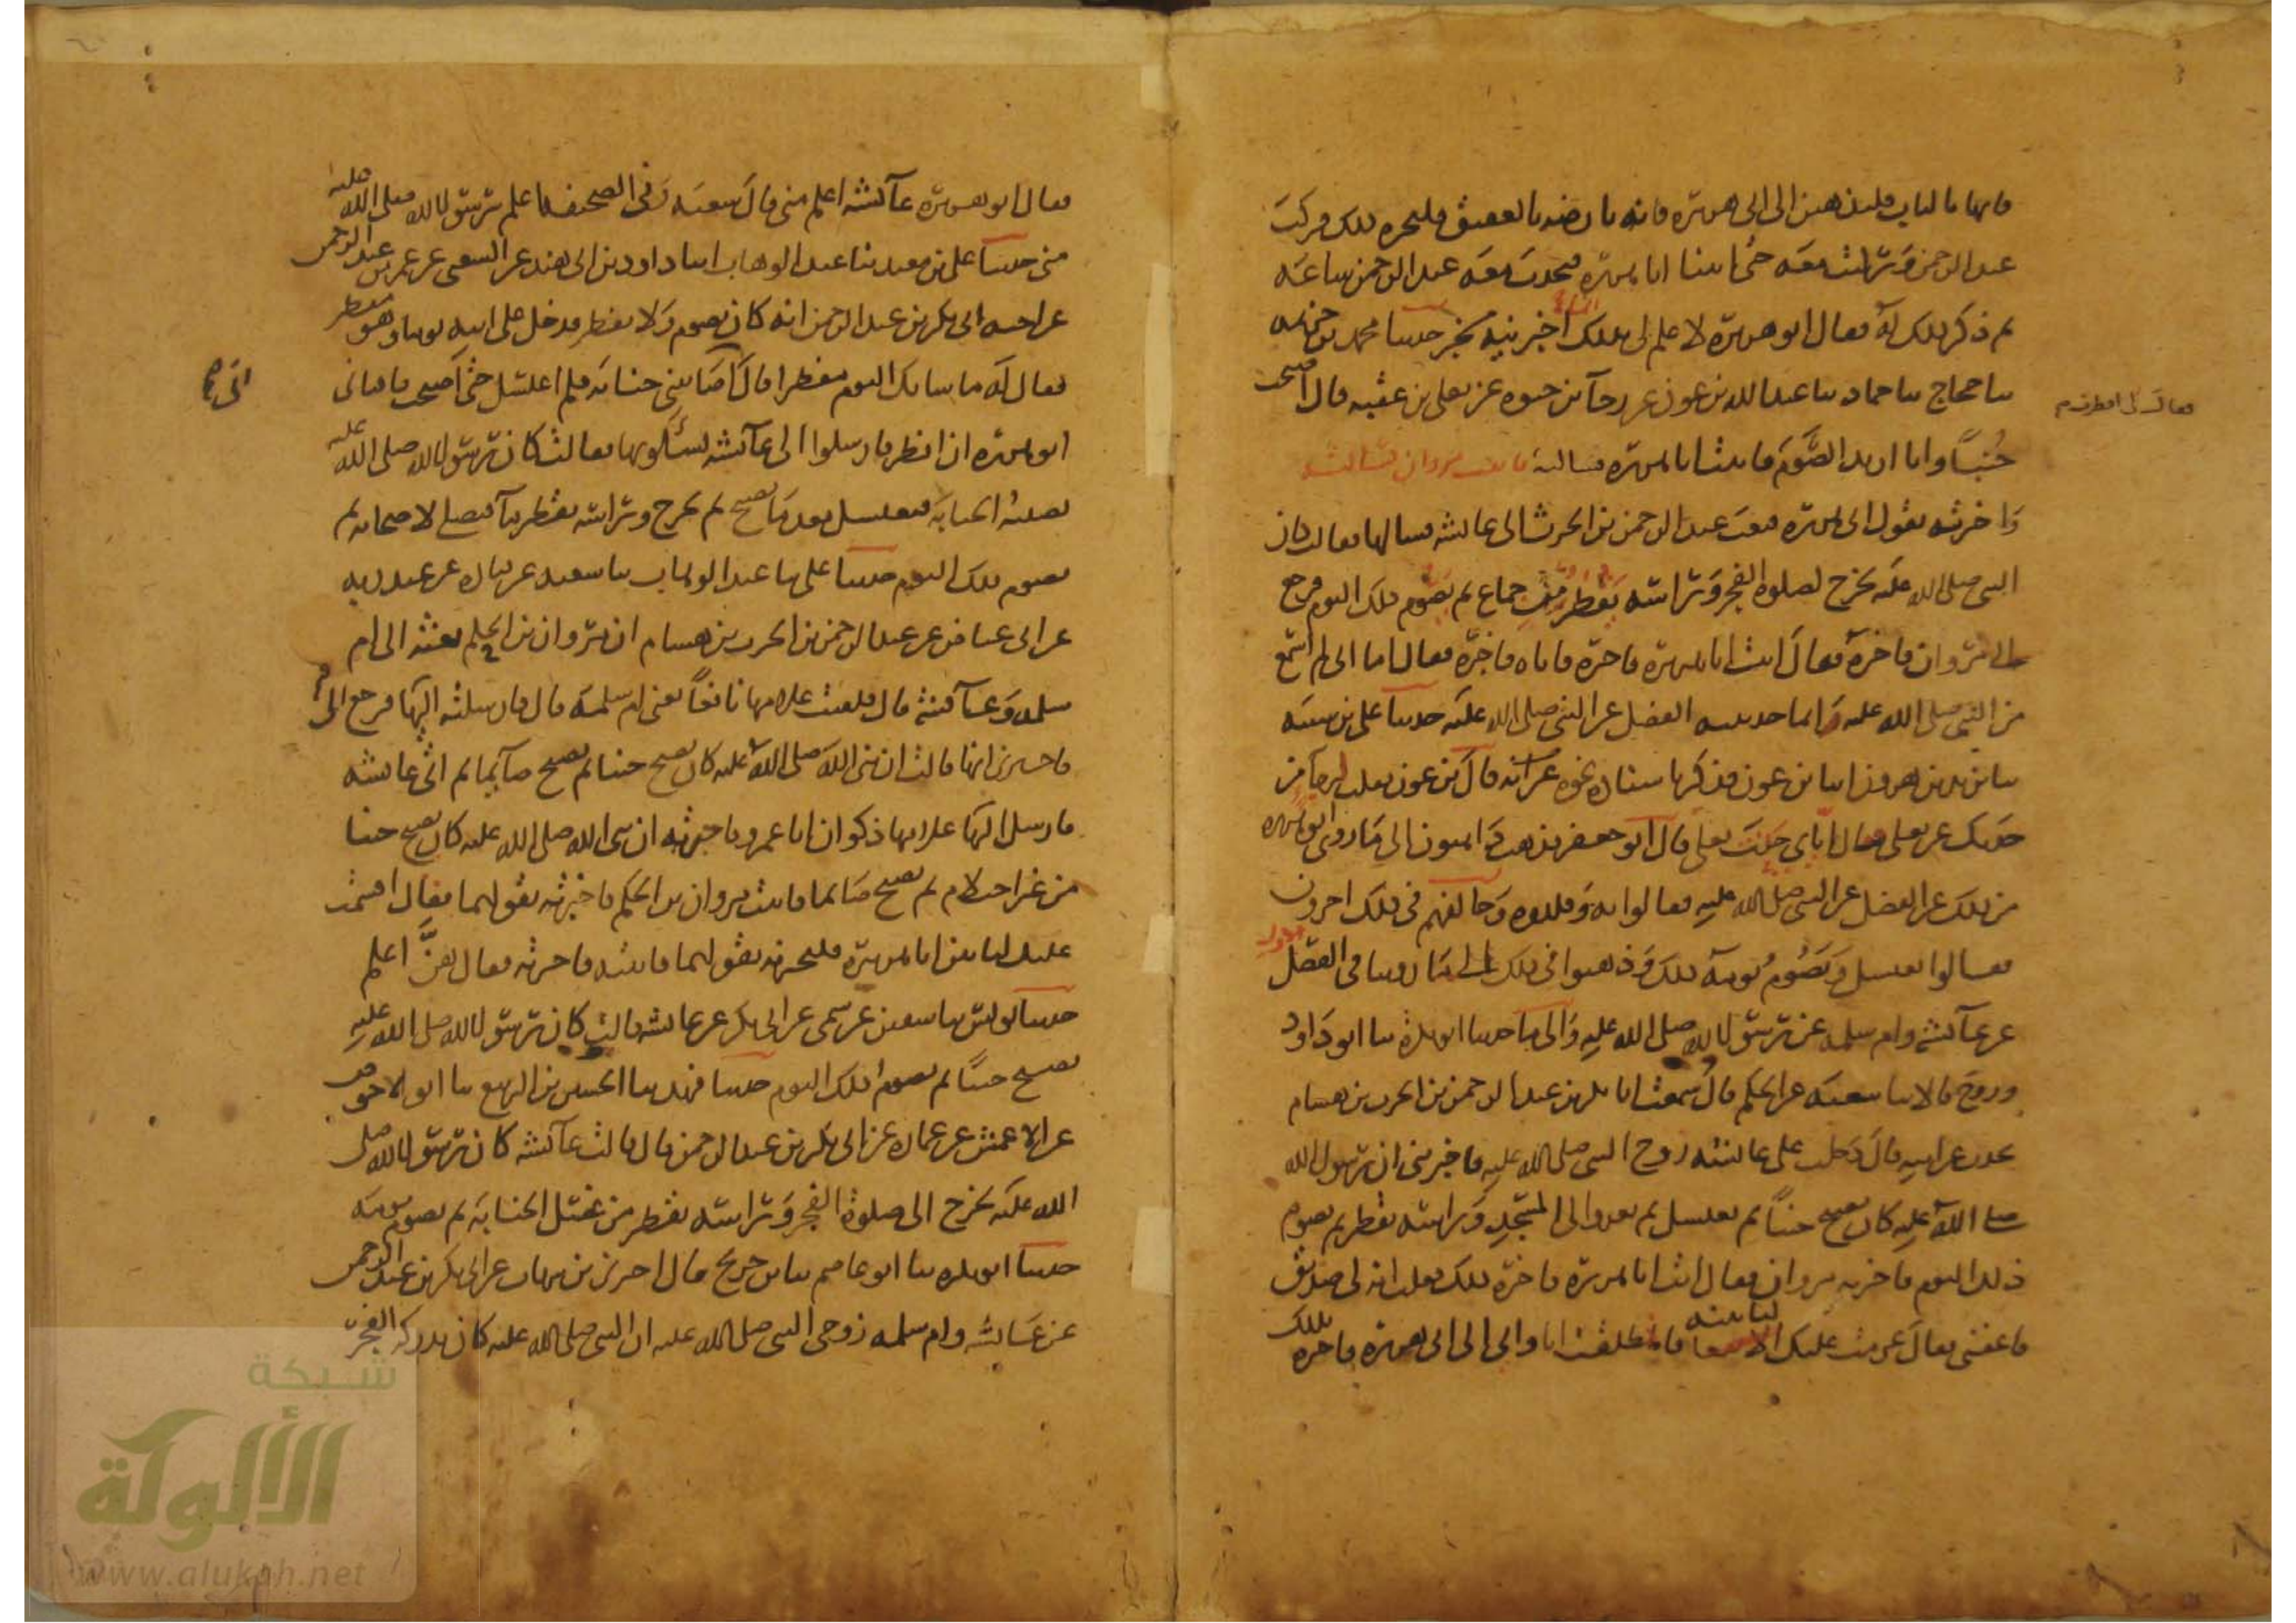 فإنها بالباب فلتذهبن إلى أبي هريرة فإنه بأرضه بالعقيق فلتخبرنه بذلك فركب
عبد الرحمن وركبت معه حتى أتينا أبا هريرة فتحدث معه عبد الرحمن ساعة
ثم ذكر ذلك له فقال أبو هريرة لا علم لي بذلك إنما أخبرنيه مخبر حدثنا محمد بن خزيمة
ثنا حجاج ثنا حماد ثنا عبد الله بن عون عن رجاء بن حيوة عن يعلى بن عقبة قال أصبحت
جنبا وأنا أريد الصوم فأتيت أبا هريرة فسألته فأتيت مروان فسألته
فقال لي أفطر
وأخبرته بقول أبي هريرة فبعث عبد الرحمن بن الحرث إلى عائشة فسألها فقالت كان
النبي صلى الله عليه يخرج لصلوة الفجر ورأسه يقطر من جماع ثم يصوم ذلك اليوم فرجع
إلى مروان فأخبره فقال ائت أبا هريرة فأخبره فأتاه فأخبره فقال أما إني لم أسمع
من النبي صلى الله عليه إنما حدثنيه الفضل عن النبي صلى الله عليه حدثنا علي بن شيبة
ثنا يزيد بن هرون أنا ابن عون فذكر بإسناده نحوه قال ابن عون فقلت لرجاء من
حدثك عن يعلى فقال إياي حدث يعلى قال أبو جعفر فذهب ذاهبون إلى ما روى أبو هريرة
من ذلك عن الفضل عن النبي صلى الله عليه فقالوا به وقلدوه وخالفهم في ذلك آخرون
فقالوا يغتسل ويصوم يومه ذلك وذهبوا في ذلك إلى ما روينا في الفصل الأول
عن عائشة وأم سلمة عن رسول الله صلى الله عليه وإلى ما حدثنا أبو بكرة ثنا أبو داود
وروح قالا ثنا شعبة عن الحكم قال سمعت أبا بكر بن عبد الرحمن بن الحرث بن هشام
يحدث عن أبيه قال دخلت على عائشة زوج النبي صلى الله عليه فأخبرتني أن رسول الله
صلى الله عليه كان يصبح جنبا ثم يغتسل ثم يغدو إلى المسجد ورأسه يقطر ثم يصوم
ذلك اليوم فأخبرته مروان فقال ائت أبا هريرة فأخبره بذلك فقلت إنه لي صديق
فاعفني فقال عزمت عليك لتأتينه فانطلقت أنا وأبي إلى أبي هريرة فأخبره بذلك
فقال أبو هريرة عائشة أعلم مني قال شعبة وفي الصحيفة أعلم برسول الله صلى الله عليه
مني حدثنا علي بن معبد ثنا عبد الوهاب أنا داود بن أبي هند عن الشعبي عن عمر بن عبد الرحمن
عن أخيه أبي بكر بن عبد الرحمن أنه كان يصوم ولا يفطر فدخل على أبيه يوما وهو مفطر
فقال له ما شأنك اليوم مفطرا قال أصابتني جنابة فلم أغتسل حتى أصبحت فأفتاني
أبو هريرة أن أفطر فأرسلوا إلى عائشة يسألونها فقالت كان رسول الله صلى الله عليه
تصيبه الجنابة فيغتسل بعد ما يصبح ثم يخرج ورأسه يقطر ماء فيصلي لأصحابه ثم
يصوم ذلك اليوم حدثنا علي ثنا عبد الوهاب ثنا سعيد عن قتادة عن عبد ربه
عن أبي عياض عن عبد الرحمن بن الحرث بن هشام أن مروان بن الحكم بعثه إلى أم
سلمة وعائشة قال فلقيت غلامها نافعا يعني أم سلمة قال فأرسلته إليها فرجع إلي
فأخبرني أنها قالت إن نبي الله صلى الله عليه كان يصبح جنبا ثم يصبح صائما ثم أتى عائشة
فأرسل إليها غلامها ذكوان أبا عمرو فأخبرته أن نبي الله صلى الله عليه كان يصبح جنبا
من غير احتلام ثم يصبح صائما فأتيت مروان بن الحكم فأخبرته بقولهما فقال أقسمت
عليك لتأتين أبا هريرة فلتخبرنه بقولهما فأتيته فأخبرته فقال هن أعلم
حدثنا يونس ثنا سفين عن سمي عن أبي بكر عن عائشة قالت كان رسول الله صلى الله عليه
يصبح جنبا ثم يصوم ذلك اليوم حدثنا فهد ثنا الحسن بن الربيع ثنا أبو الأحوص
عن الأعمش عن عمارة عن أبي بكر بن عبد الرحمن قال قالت عائشة كان رسول الله صلى
الله عليه يخرج إلى صلوة الفجر ورأسه يقطر من غسل الجنابة ثم يصوم يومه
حدثنا أبو بكرة ثنا أبو عاصم ثنا ابن جريج قال أخبرني ابن شهاب عن أبي بكر بن عبد الرحمن
عن عائشة وأم سلمة زوجي النبي صلى الله عليه أن النبي صلى الله عليه كان يدركه الفجر
شبكة
الألوكة
www.alukah.net